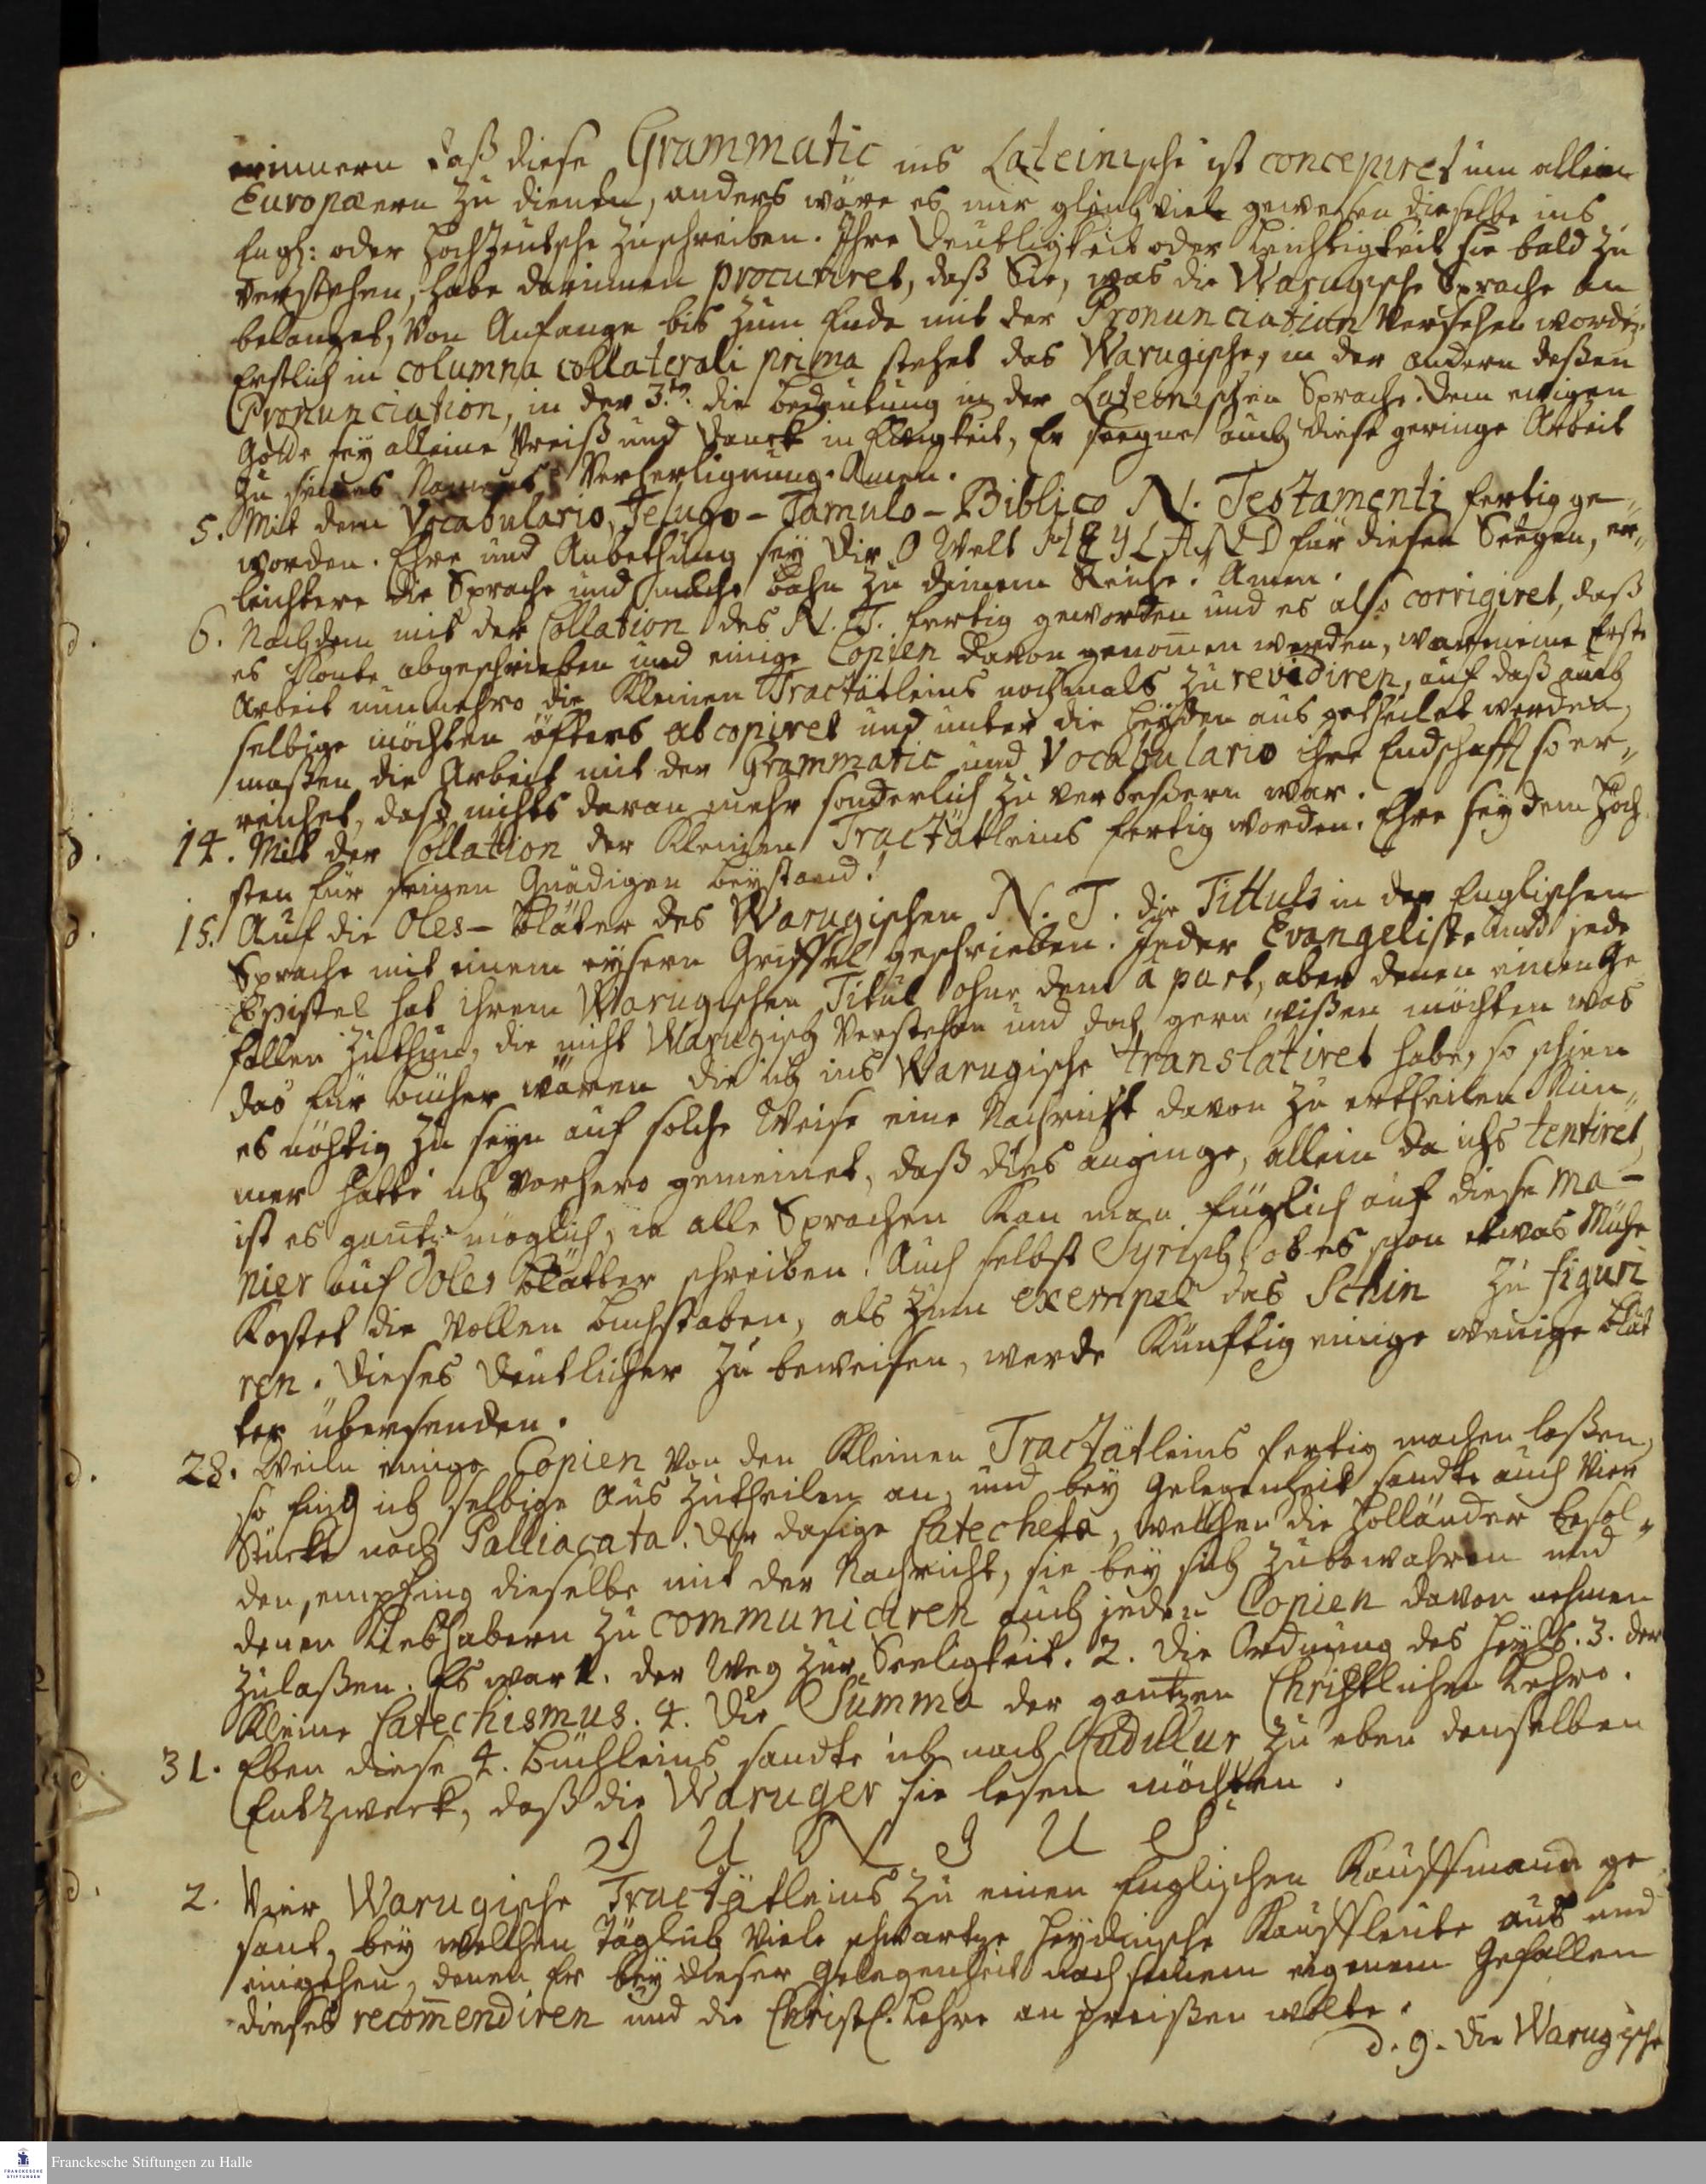 erinnern daß diese Grammatic ins Lateinische ist concepiret um allein
Europæern zu dienen, anders wäre es mir gleich viele gewesen dieselbe ins
Engl: oder Hochteutsche zuschreiben. Ihre Deutligkeit oder Leichtigkeit sie bald zu
verstehen, habe darinnen procuriret, daß Sie, was die Warugische Sprache an
belanget, von Anfange bis zum Ende mit der Pronunciation versehen worden.
Erstlich in columna collaterali prima stehet das Warugische, in der andern deßen
Pronunciation, in der 3.ten die Bedeutung in der Lateinischen Sprache. Dem ewigen
Gotte sey alleine Preiß und Danck in Ewigkeit, Er seegne auch diese geringe Arbeit
zu seines Namens Verherligung. Amen.
5. Mit dem Vocabulario, Telugo-Tamulo-Biblico N. Testamenti fertig ge-
worden. Ehre und Anbethung sey Dir O Welt HEYLAND für diesen Seegen, er-
leichtere die Sprache und mache bahn zu deinem Reiche. Amen.
6. Nachdem mit der Collation des N. T. fertig geworden und es also corrigiret, daß
es konte abgeschrieben und einige Copien davon genom̄en werden, war meine Erste
Arbeit nunmehro die kleinen Tractätleins nochmals zu revidiren, auf daß auch
selbige möchten öfters abcopiret und unter die Heyden ausgetheilet werden,
maßen die Arbeit mit der Grammatic und Vocabulario ihre Endschafft so er-
reichet, daß nichts daran mehr sonderlich zu verbeßern war.
14. Mit der Collation der kleinen Tractätleins fertig worden. Ehre sey dem Höch
sten für seinen Gnädigen beystand!
15. Auf die Oles-Bläter des Warugischen N. T. die Tittuls in der Englischen
Sprache mit einem eysern Griffel geschrieben. Jeder Evangeliste und jede
Epistel hat ihrem Warugischen Titul ohne dem à part, aber denen einen Ge
fallen zuthun, die nicht Warugisch verstehen und doch gern wißen möchten was
das für bücher wären die ich ins Warugische translatiret habe, so schien
es nöhtig zu seyn auf solche Weise eine Nachricht davon zu ertheilen. Nim-
mer hatte ich vorhero gemeinet, daß dies anginge, allein da ichs tentiret,
ist es gantz möglich, in alle Sprachen kan man füglich auf diese Ma-
nier auf Oles blätter schreiben. Auch selbst Syrisch, ob es schon etwas Mühe
kostet die vollen buchstaben, als zum exempel das Schin zu figuri
ren. Dieses deutlicher zu beweisen, werde künftig einige wenige blät
ter übersenden.
28. Weiln einige Copien von den kleinen Tractätleins fertig machen laßen,
so fing ich selbige aus zutheilen an, und bey Gelegenheit sandte auch vier
Stücke nach Palliacata. Der dasige Catecheta, welchen die Holländer besol-
den, empfing dieselbe mit der Nachricht, sie bey sich zubewahren und
denen Liebhabern zu communiciren auch jeden Copien davon nehmen
zulaßen. Es war 1. der Weg zur Seeligkeit. 2. die Ordnung des Heyls. 3. der
kleine Catechismus. 4. Die Summa der gantzen Christlichen Lehre.
31. Eben diese 4. Büchleins sandte ich nach Cudulur zu eben denselben
Entzweck, daß die Waruger sie lesen möchten.
JUNIUS
2. Vier Warugische Tractätleins zu einen Englischen Kauffmann ge
sant, bey welchen Täglich viele schwartze Heydnische Kauffleute aus und
eingehen, denen Er bey dieser Gelegenheit nach seinem eigenem Gefallen
dieses recom̄endiren und die Christl. Lehre anpreißen wolte.
d. 9. Die Warugische
Franckesche Stiftungen zu Halle